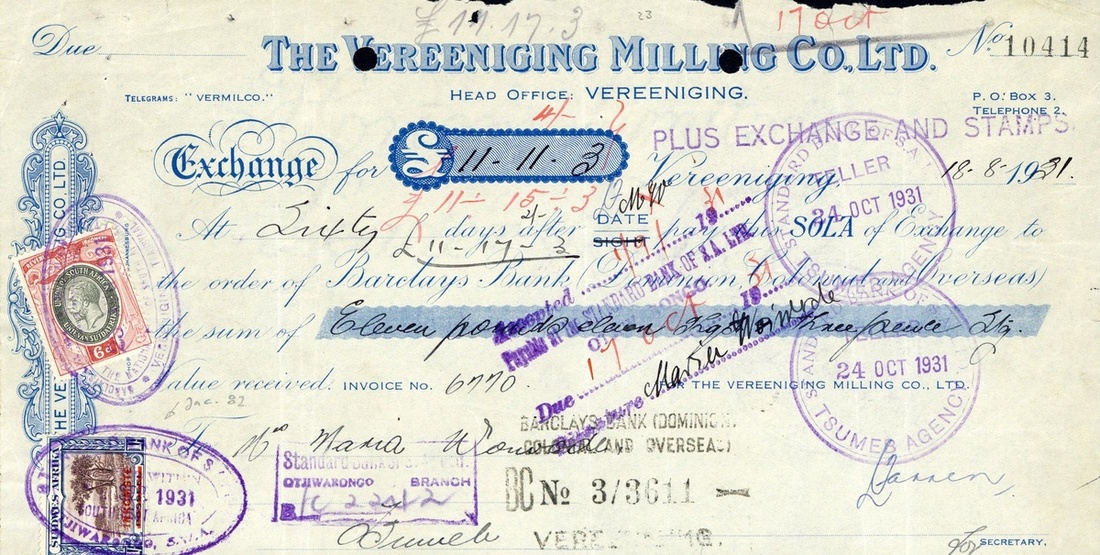 £11.17.3
23
17 Oct
Due
THE VEREENIGING MILLING CO., LTD.
No. 10414
TELEGRAMS: "VERMILCO."
HEAD OFFICE: VEREENIGING.
P.O. BOX 3.
TELEPHONE 2.
4/-
PLUS EXCHANGE AND STAMPS.
Exchange for £ 11-11-3
Vereeniging, 18-8-1931.
£ 11-15-3
TELLER
24 OCT 1931
TSUMEB AGENCY
At Sixty days after DATE SIGHT pay this SOLA of Exchange to
£11-17-3
the order of Barclays Bank (Dominion, Colonial and Overseas)
the sum of Eleven pounds eleven Threepence Stg.
Accepted 19
Payable at The STANDARD BANK OF S.A. LTD.
17 Oct
Due 19
SOUTH AFRICA
6d
Value received. INVOICE No. 6770.
FOR THE VEREENIGING MILLING CO., LTD.
STANDARD BANK OF
TELLER
24 OCT 1931
TSUMEB AGENCY
Maria
BARCLAYS BANK (DOMINION,
COLONIAL AND OVERSEAS)
Standard Bank of S.
OTJIWARONGO BRANCH
B
BC No 3/3611
VEREENIGING.
Tsumeb
BANK OF S.
1931
SECRETARY.